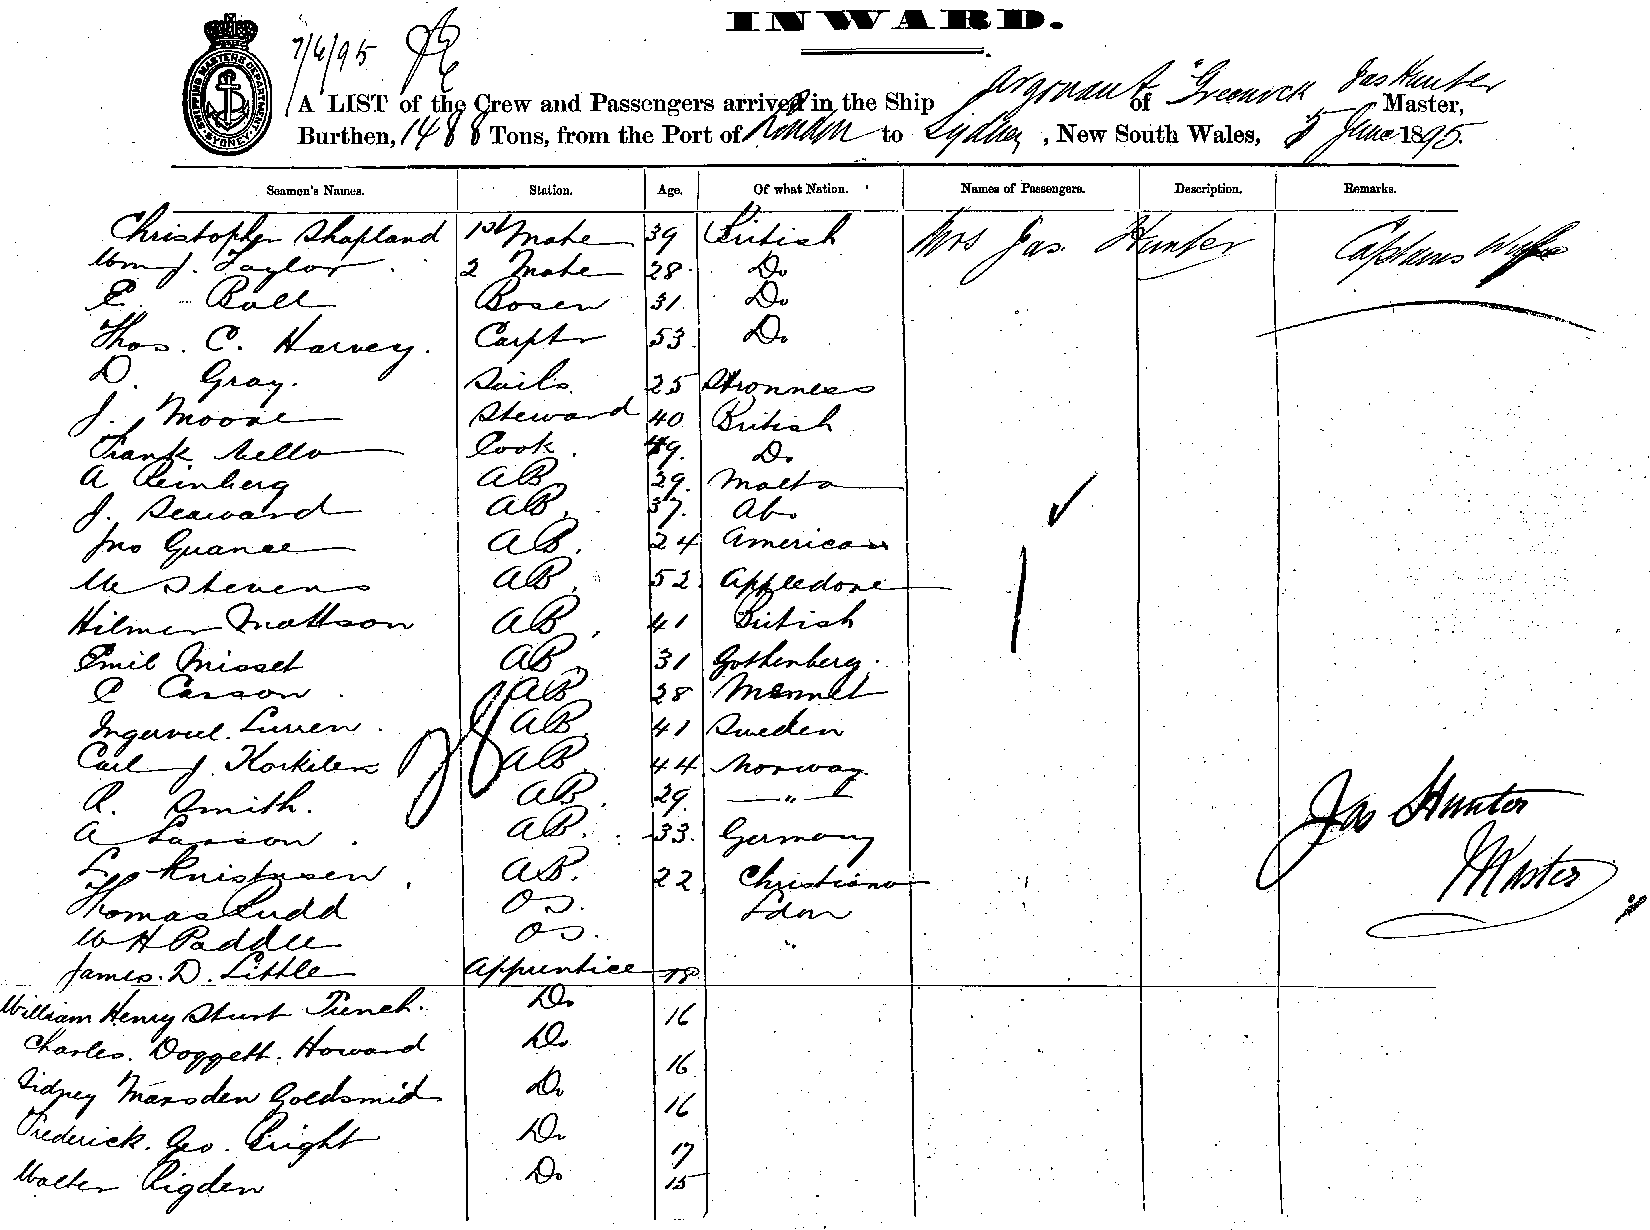 INWARD.
7/6/95
A LIST of the Crew and Passengers arrived in the Ship Argonaut of Greenock Jas Hunter Master,
Burthen, 1488 Tons, from the Port of London to Sydney, New South Wales, 5 June 1895.
Seamen's Names. Station. Age. Of what Nation. Names of Passengers. Description. Remarks.
Christopher Shapland 1st Mate 39 British Mrs Jas. Hunter Captains Wife
Wm J. Taylor 2 Mate 28 Do
E. Ball Bosen 31 Do
Thos. C. Harvey. Carptr 53 Do
D. Gray. Sails. 25 Stronness
J. Moore Steward 40 British
Frank Cook. 49. Do
A Reinberg AB 29. Malta
J. Seaward AB. 37. Abo
Jno Guance AB. 24 American
Stevens AB. 52 Appledore
Hilmer Mattson AB. 41 British
Emil Misset AB 31 Gothenberg.
C Carson AB 28
Ingervuel. AB 41 Sweden
Carl J. AB 44 Norway
R. Smith. AB. 29. — " —
A Larson AB. 33. Germany
AB. 22
Thomas Rudd OS. Ldon
W H Paddle OS. "
James. D. Little Apprentice 18
William Henry Sturt Do 16
Charles. Doggett. Howard Do 16
Sidney Marsden Goldsmid Do 16
Frederick. Geo. Bright Do 17
Walter Rigden Do 15
Jas Hunter
Master